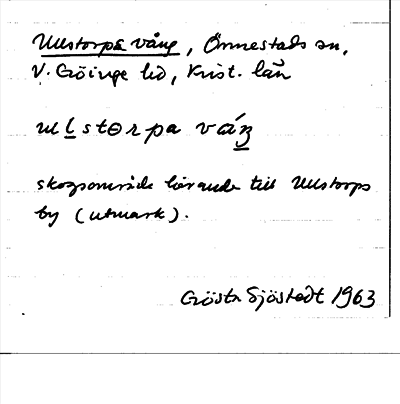 Ullstorpa vång, Önnestads sn,
V. Göinge hd, Krist. län
ul̲storpa váŋ̲
skogsområde hörande till Ullstorps
by (utmark).
Gösta Sjöstedt 1963